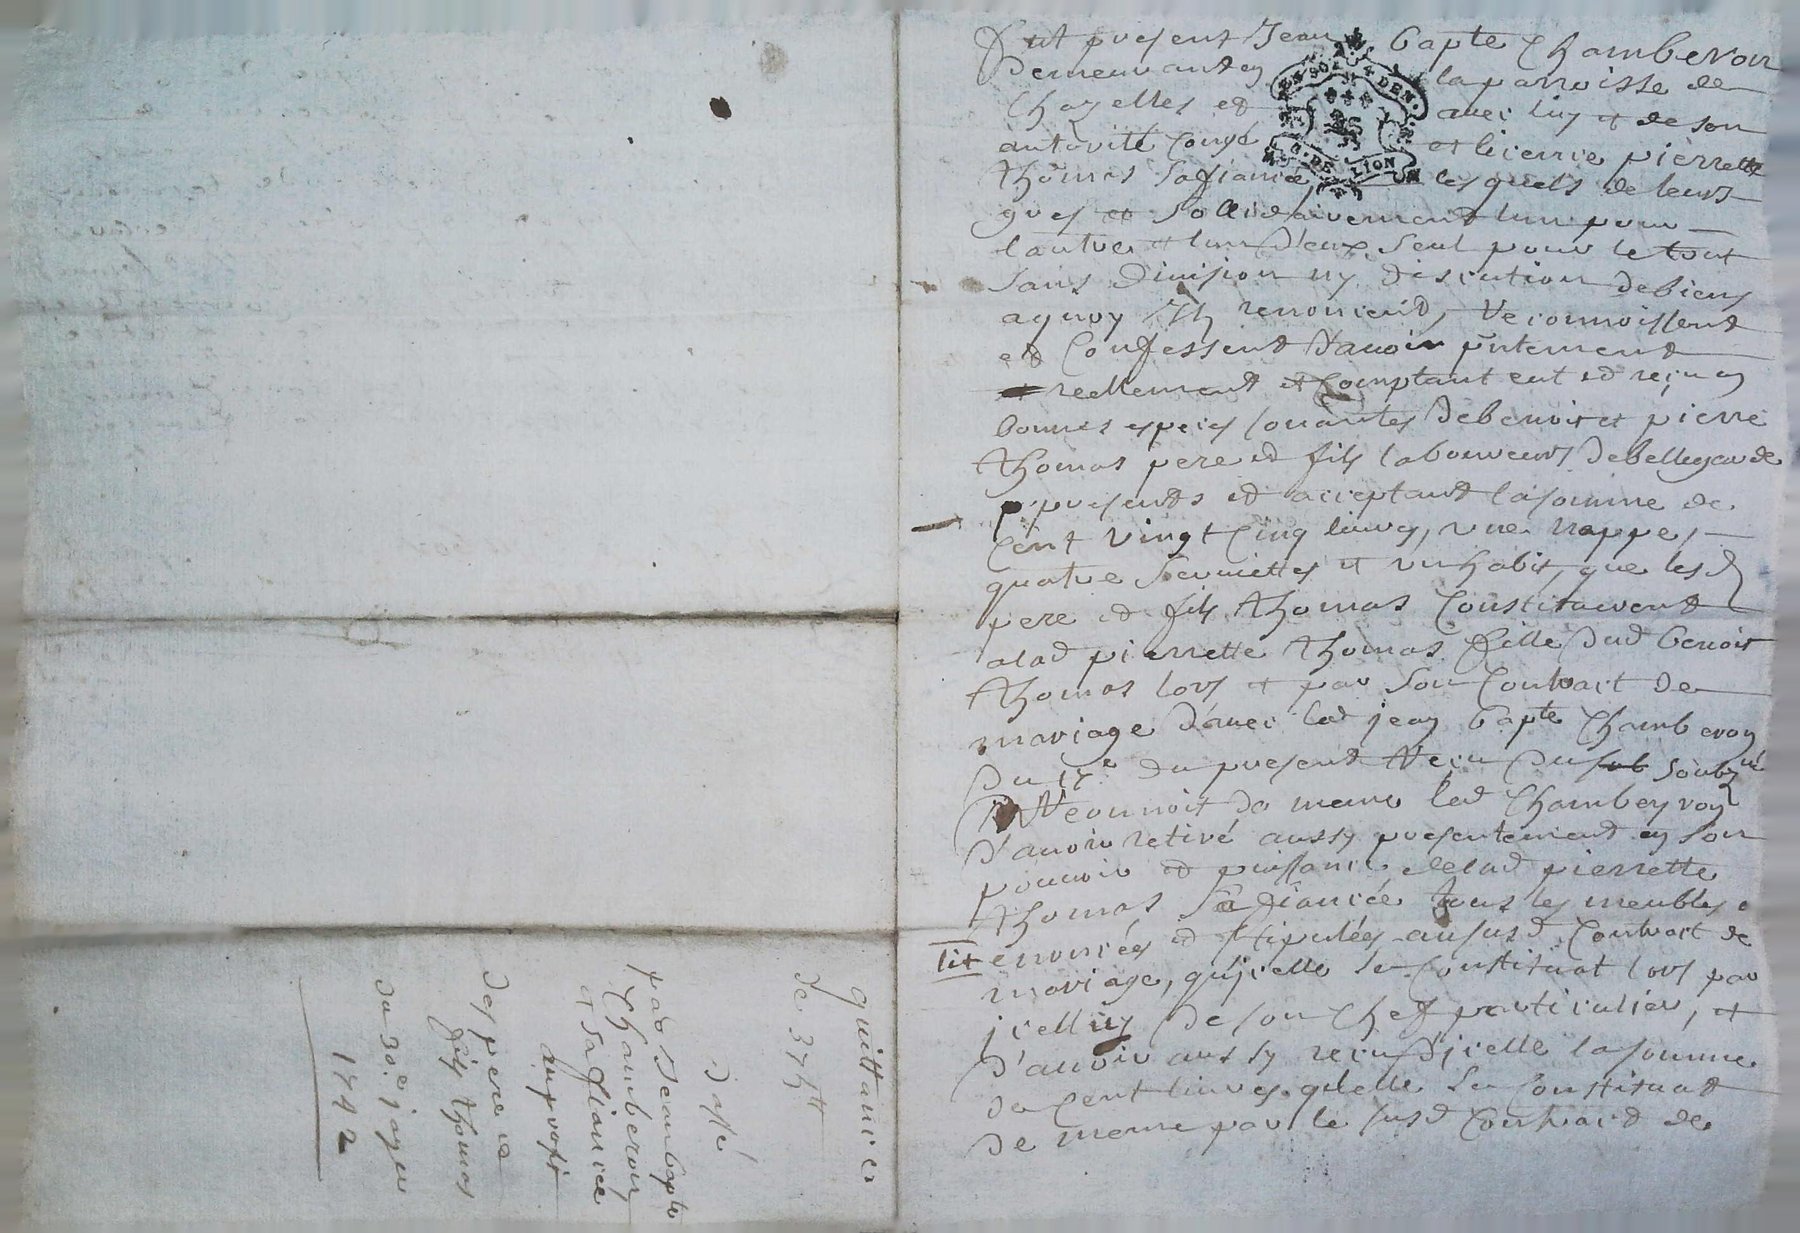 fut present Jean bapte Chamberon
Demeurant en la parroisse de
Chazelles et avec luy et de son
autorité Congé et licence pierrette
thomas Safiancé, les quels de leurs
grés et Sollidairement lun pour
lautre et lun D'eux Seul pour le tout
Sans Division ny discution De biens
aquoy ils renoncent, Reconnoissent
et Confessent Davoir pntement
reellement et Comptant eut et reçu en
bonnes especes sonantes De benoit et pierre
thomas pere et fils laboureurs De bellegarde
presents et acceptant la somme de
Cent vingt Cinq livres, une nappe,
quatre Serviettes et un habit, que les d
pere et fils thomas Constituerent
a lad pierrette thomas fille Dud benoit
thomas lors et par Son Contract de
mariage D'avec led jean bapte Chamberon
Du 17e du present Reçu Du soubzné
Reconnoit de meme led Chambeyron
D'avoir retiré aussy presentement en Son
pouvoir et puissance de lad pierrette
thomas Safiancée tous les meubles
enoncées et stipulées au susd Contract de
mariage, qu'jcelle Se Constituat lors par
jcelluy De son Chef particulier, et
D'avoir aussy reçu D'jcelle la somme
de Cent livres qu'elle Se Constituat
de meme par le susd Contract de
quittance
de 375tt
passé
par Jean bapte
Chamberon
et Safiancée
au profit
Des pere et
fils thomas
du 30e janer
1772
GEN DE LION